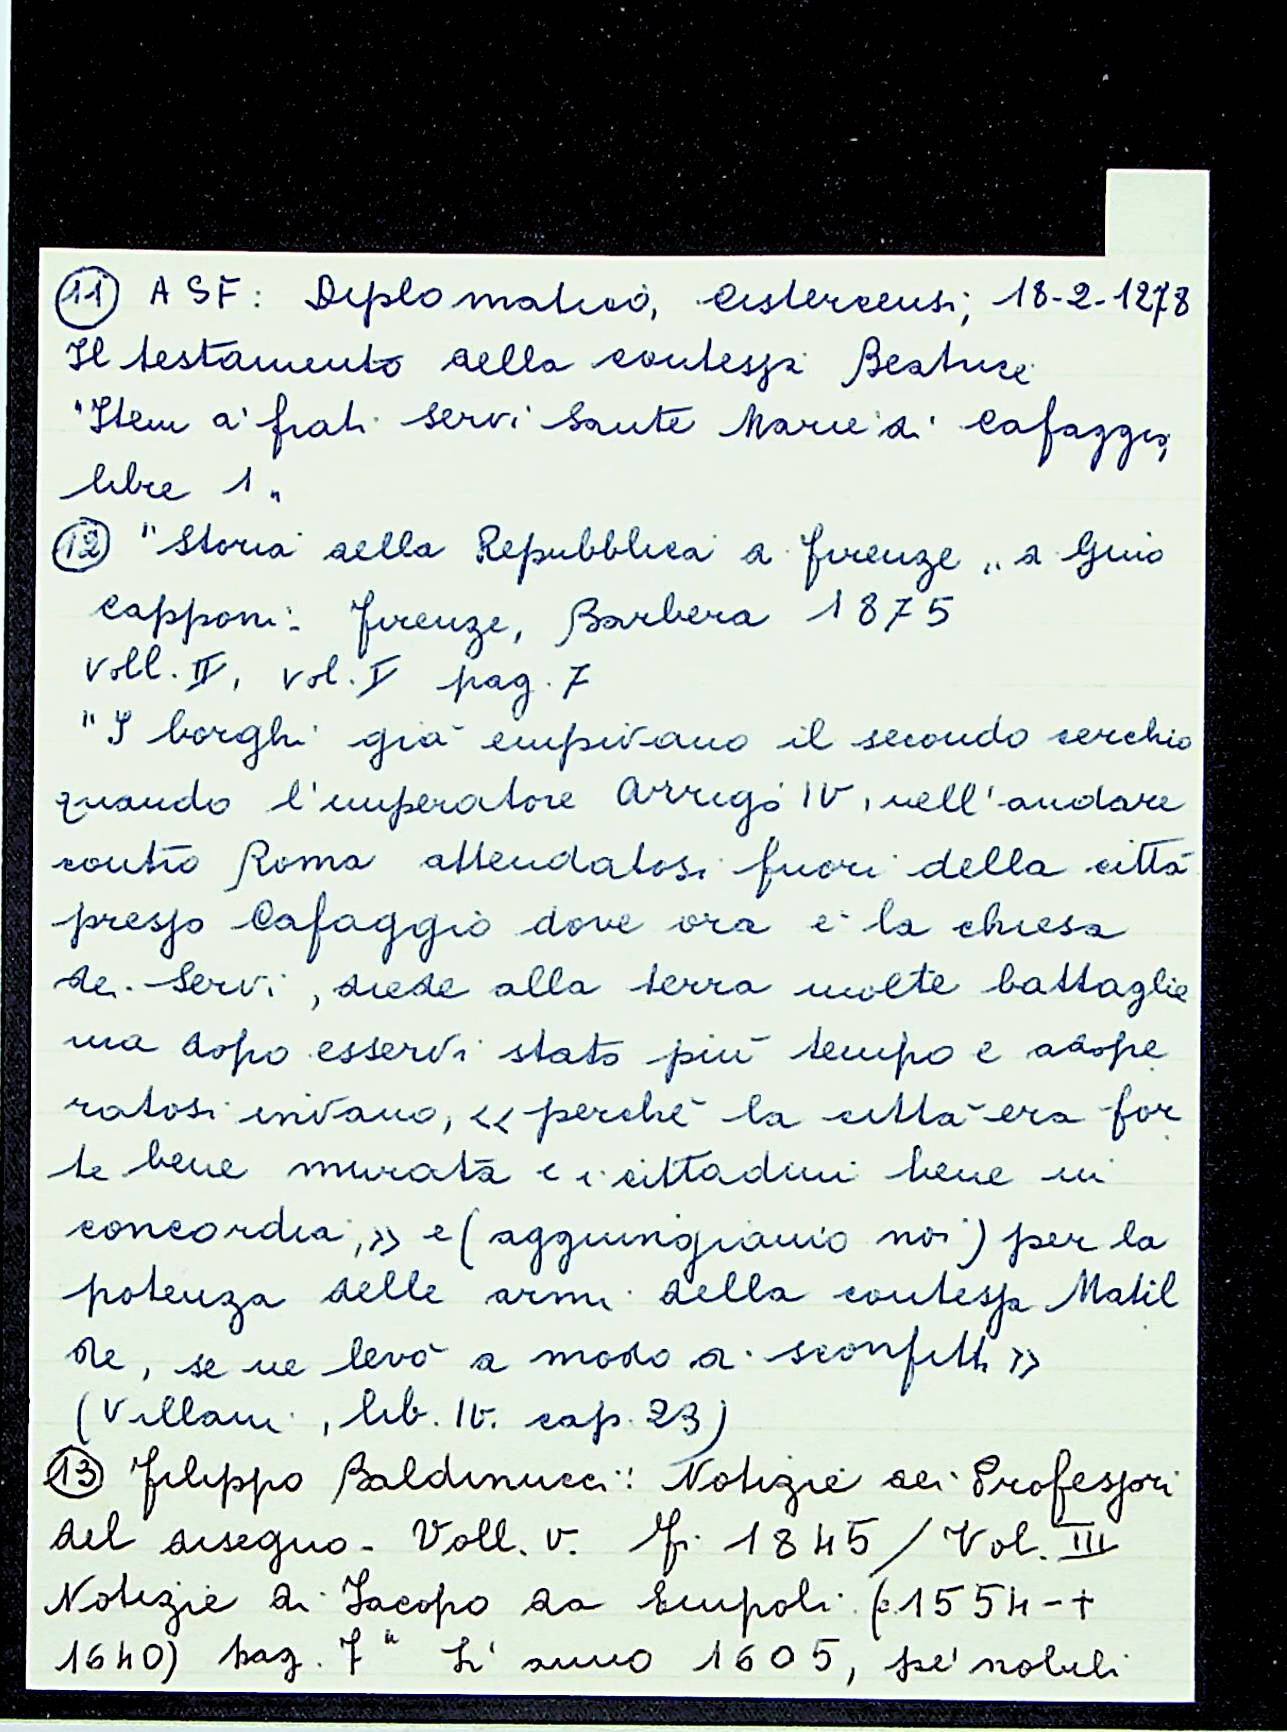 (11) ASF: Diplomatico, Cistercensi, 18-2-1278
Il testamento della contessa Beatrice
"Item a' frati servi Sante Marie di Cafaggio,
libre 1"
(12) "Storia della Repubblica di Firenze" di Gino
Capponi - Firenze, Barbera 1875
Voll. II, vol. I pag. 7
"I borghi già empivano il secondo cerchio
quando l'imperatore Arrigo IV, nell'andare
contro Roma attendatosi fuori della città
presso Cafaggio dove ora è la chiesa
dei Servi, diede alla terra molte battaglie
ma dopo esservi stato più tempo e adope
ratosi invano, << perché la città era for
te bene murata e i cittadini bene in
concordia, >> e (aggiungiamo noi) per la
potenza delle armi della contessa Matil
de, se ne levò a modo di sconfitti >>
(Villani, lib. IV. cap. 23)
(13) Filippo Baldinucci: Notizie dei Professori
del disegno - Voll. V. Fi 1845 / Vol. III
Notizie di Jacopo da Empoli (1554 - +
1640) pag. 7 " L'anno 1605, pe' nobili